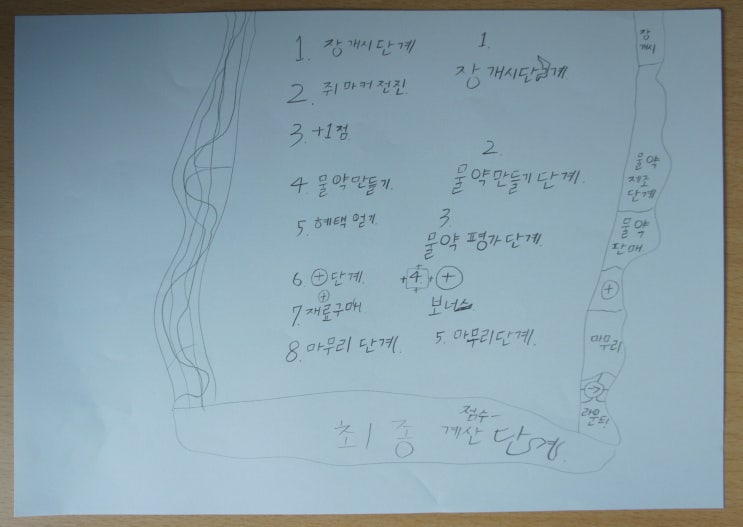 1. 장 개시 단계
2. 쥐 마커 전진
3. +1점
4. 물약 만들기.
5. 혜택 얻기
6. ⊕ 단계.
⊕
7. 재료구매
8. 마무리 단계.
1.
장 개시단계
2.
물약 만들기 단계.
3.
물약 평가 단계.
4. +
보너스
5. 마무리단계.
장
개시
물약
제조
단계
물약
판매
+
마무리
→
라운드
최종 점수
계산 단계.